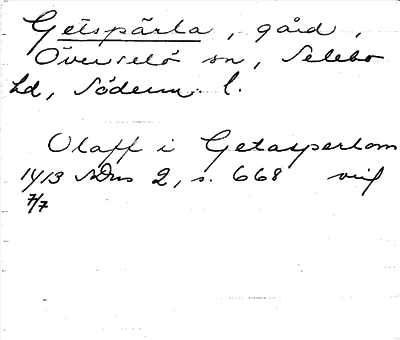 Getspärla, gård,
Överselö sn, Selebo
hd, Söderm. l.
Olaff i Getasperlom
1413 SDns 2, s. 668
7/7